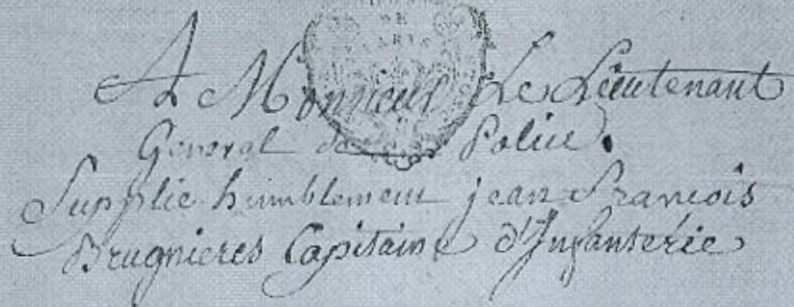 DE
PARIS
A Monsieur Le Lieutenant
General de Police.
Supplie humblement jean francois
Brugnieres Capitaine d'Infanterie